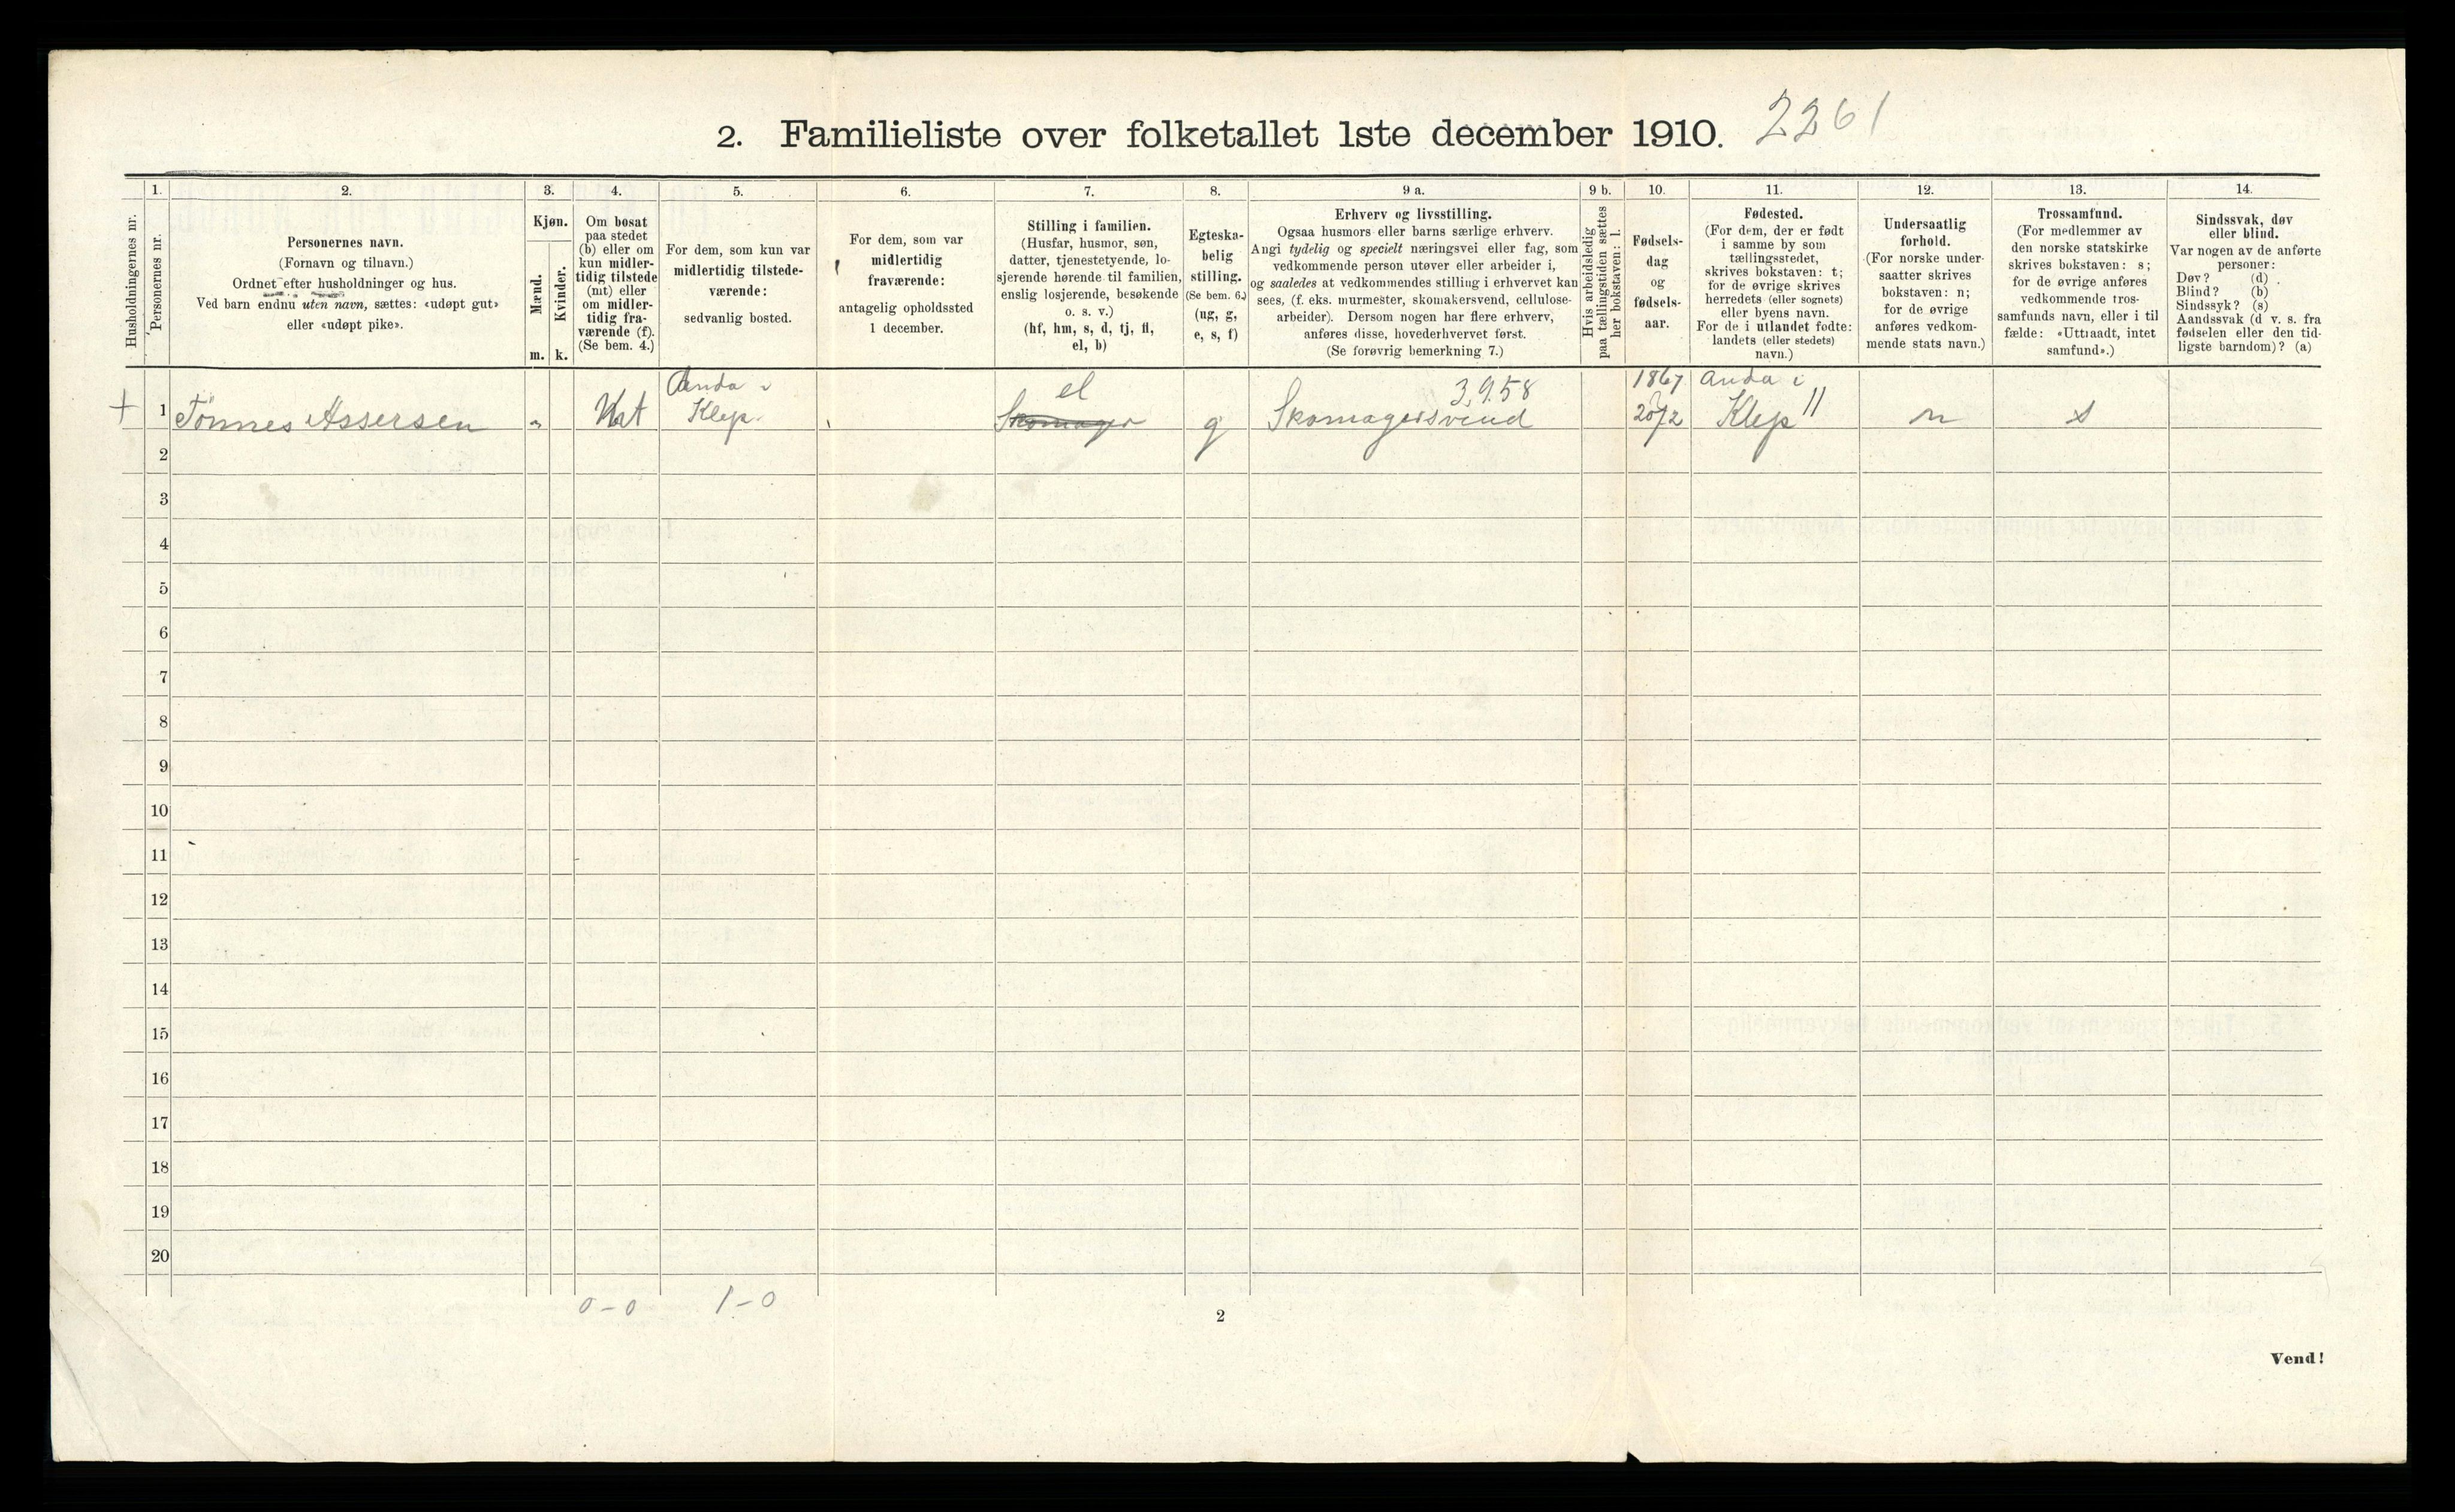 2. Familieliste over folketallet 1ste december 1910. 2261
1. 2. 3. 4. 5. 6. 7. 8. 9 a. 9 b. 10. 11. 12. 13. 14.
Husholdningernes nr.
Personernes nr.
Personernes navn.
(Fornavn og tilnavn.)
Ordnet efter husholdninger og hus.
Ved barn endnu uten navn, sættes: «udøpt gut»
eller «udøpt pike».
Kjøn.
Mænd.
Kvinder.
m. k.
Om bosat
paa stedet
(b) eller om
kun midler-
tidig tilstede
(mt) eller
om midler-
tidig fra-
værende (f).
(Se bem. 4.)
For dem, som kun var
midlertidig tilstede-
værende:
sedvanlig bosted.
For dem, som var
midlertidig
fraværende:
antagelig opholdssted
1 december.
Stilling i familien.
(Husfar, husmor, søn,
datter, tjenestetyende, lo-
sjerende hørende til familien,
enslig losjerende, besøkende
o. s. v.)
(hf, hm, s, d, tj, fl,
el, b)
Egteska-
belig
stilling.
(Se bem. 6.)
(ug, g,
e, s, f)
Erhverv og livsstilling.
Ogsaa husmors eller barns særlige erhverv.
Angi tydelig og specielt næringsvei eller fag, som
vedkommende person utøver eller arbeider i,
og saaledes at vedkommendes stilling i erhvervet kan
sees, (f. eks. murmester, skomakersvend, cellulose-
arbeider). Dersom nogen har flere erhverv,
anføres disse, hovederhvervet først.
(Se forøvrig bemerkning 7.)
Hvis arbeidsledig
paa tællingstiden sættes
her bokstaven: l.
Fødsels-
dag
og
fødsels-
aar.
Fødested.
(For dem, der er født
i samme by som
tællingsstedet,
skrives bokstaven: t;
for de øvrige skrives
herredets (eller sognets)
eller byens navn.
For de i utlandet fødte:
landets (eller stedets)
navn.)
Undersaatlig
forhold.
(For norske under-
saatter skrives
bokstaven: n;
for de øvrige
anføres vedkom-
mende stats navn.)
Trossamfund.
(For medlemmer av
den norske statskirke
skrives bokstaven: s;
for de øvrige anføres
vedkommende tros-
samfunds navn, eller i til
fælde: «Uttraadt, intet
samfund».)
Sindssvak, døv
eller blind.
Var nogen av de anførte
personer:
Døv? (d)
Blind? (b)
Sindssyk? (s)
Aandssvak (d v. s. fra
fødselen eller den tid-
ligste barndom)? (a)
Anda i el 3,958 1867 Anda i
+ 1 Tönnes Assersen Mt Klep. Skomager g Skomagersvend 20/2 Klep 11 n s
2
3
4
5
6
7
8
9
10
11
12
13
14
15
16
17
18
19
20
0-0 1-0
2
Vend!